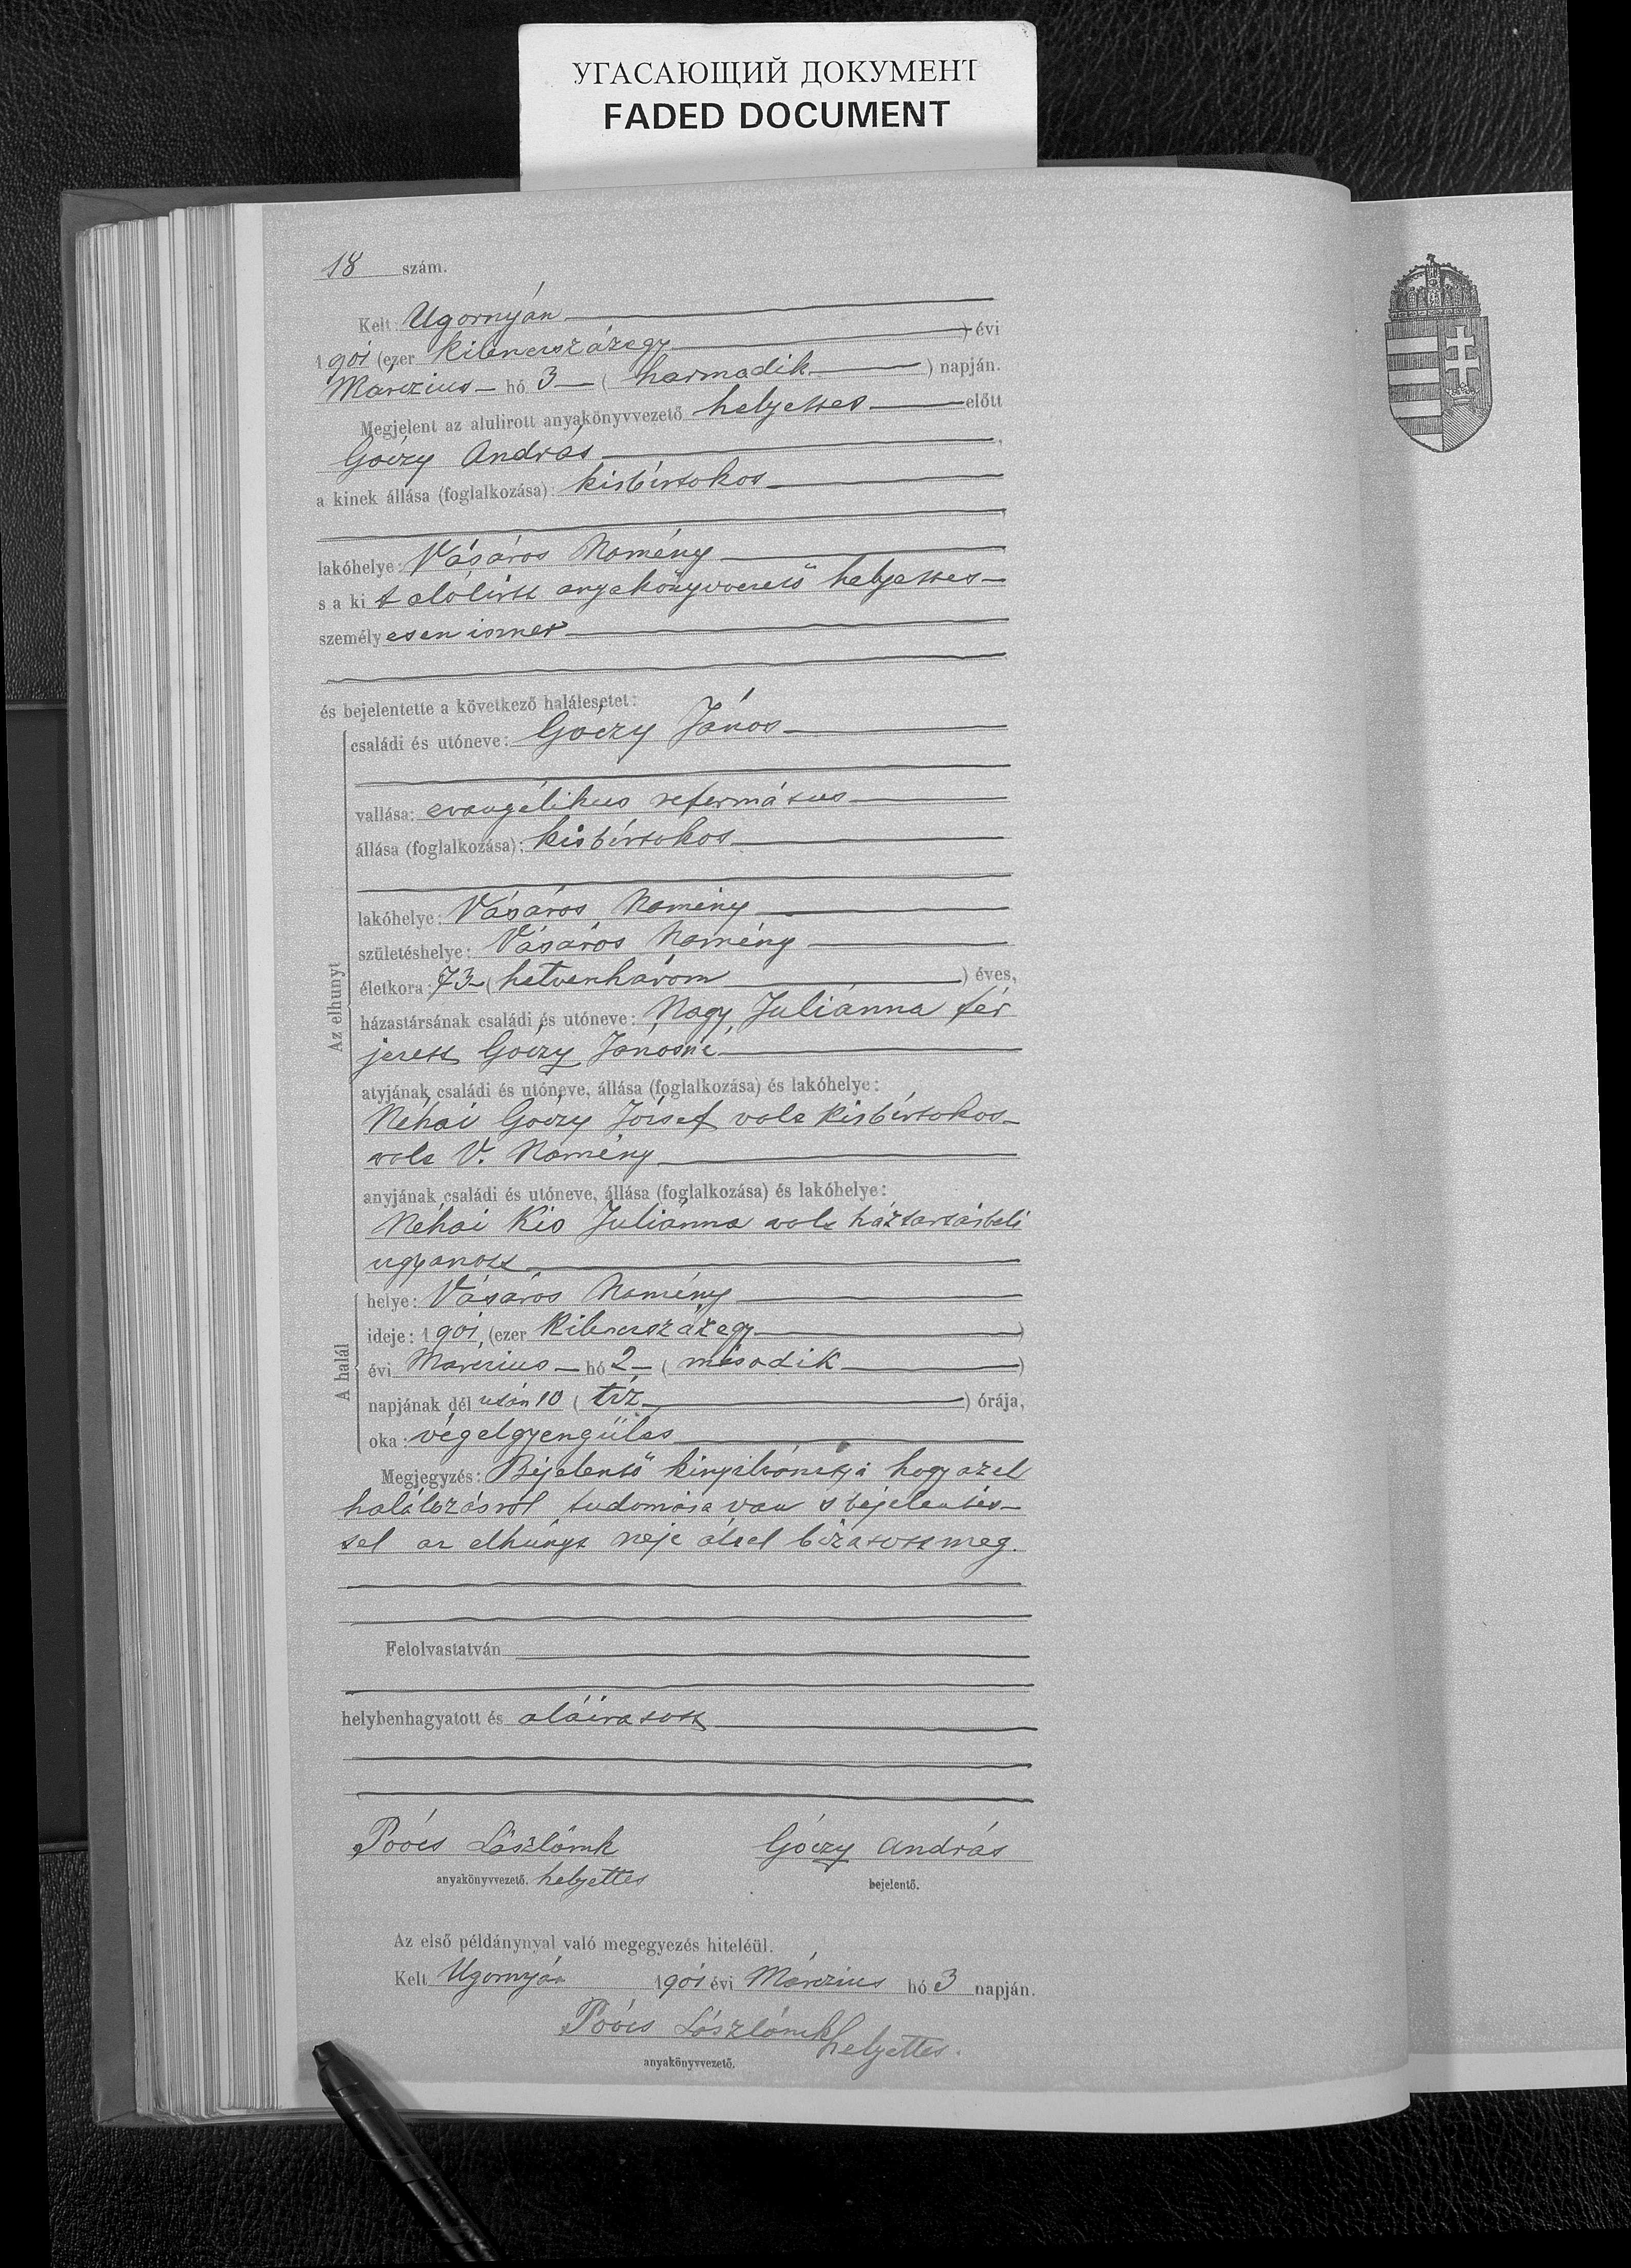 УГАСАЮЩИЙ ДОКУМЕНТ
FADED DOCUMENT
18 szám.
Kelt: Ugornyán
1901 (ezer kilenczszázegy) évi
Márczius hó 3 (harmadik) napján.
Megjelent az alulirott anyakönyvvezető helyettes előtt
Góczy András,
a kinek állása (foglalkozása): kisbirtokos
lakóhelye: Vásáros Namény
s a kit alólirtt anyakönyvvezető helyettes
személyesen ismer
és bejelentette a következő halálesetet:
Az elhunyt
családi és utóneve: Góczy János
vallása: evangélikus református
állása (foglalkozása): kisbirtokos
lakóhelye: Vásáros Namény
születéshelye: Vásáros Namény
életkora: 73 (hetvenhárom) éves,
házastársának családi és utóneve: Nagy Juliánna fér
jezett Góczy Jánosné
atyjának családi és utóneve, állása (foglalkozása) és lakóhelye:
Néhai Góczy József volt kisbirtokos
volt V. Namény
anyjának családi és utóneve, állása (foglalkozása) és lakóhelye:
Néhai Kis Juliánna volt háztartásbeli
ugyanott
A halál
helye: Vásáros Namény
ideje: 1901, (ezer kilenczszázegy)
évi Márczius hó 2 (második)
napjának dél után 10 (tíz) órája,
oka: végelgyengülés
Megjegyzés: Bejelentő kinyilvánitja hogy az el
halálozásról tudomása van s bejelentés
sel az elhúnyt neje által bizatott meg.
Felolvastatván
helybenhagyatott és aláiratott
Poócs Lászlómk
anyakönyvvezető. helyettes
Góczy András
bejelentő.
Az első példánynyal való megegyezés hiteléül.
Kelt Ugornyán 1901 évi Márczius hó 3 napján.
Poócs Lászlómk helyettes.
anyakönyvvezető.